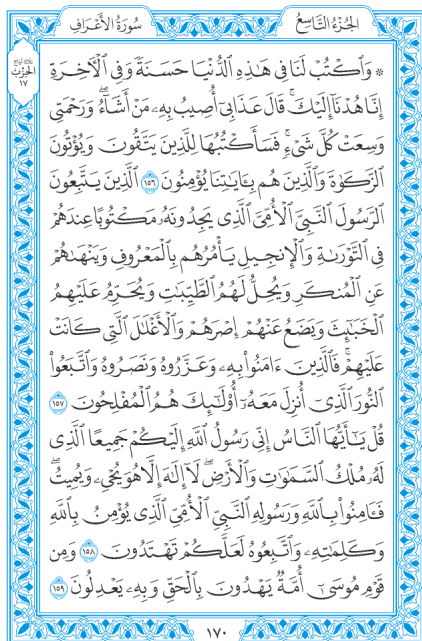 الجُزْءُ التَّاسِعُ
سُورَةُ الأَعْرَافِ
الحِزْبُ ١٧
۞ وَٱكْتُبْ لَنَا فِي هَٰذِهِ ٱلدُّنْيَا حَسَنَةً وَفِي ٱلْأٓخِرَةِ
إِنَّا هُدْنَآ إِلَيْكَۚ قَالَ عَذَابِيٓ أُصِيبُ بِهِۦ مَنْ أَشَآءُۖ وَرَحْمَتِي
وَسِعَتْ كُلَّ شَيْءٍۚ فَسَأَكْتُبُهَا لِلَّذِينَ يَتَّقُونَ وَيُؤْتُونَ
ٱلزَّكَوٰةَ وَٱلَّذِينَ هُم بِـَٔايَٰتِنَا يُؤْمِنُونَ ١٥٦ ٱلَّذِينَ يَتَّبِعُونَ
ٱلرَّسُولَ ٱلنَّبِيَّ ٱلْأُمِّيَّ ٱلَّذِي يَجِدُونَهُۥ مَكْتُوبًا عِندَهُمْ
فِي ٱلتَّوْرَىٰةِ وَٱلْإِنجِيلِ يَأْمُرُهُم بِٱلْمَعْرُوفِ وَيَنْهَىٰهُمْ
عَنِ ٱلْمُنكَرِ وَيُحِلُّ لَهُمُ ٱلطَّيِّبَٰتِ وَيُحَرِّمُ عَلَيْهِمُ
ٱلْخَبَٰٓئِثَ وَيَضَعُ عَنْهُمْ إِصْرَهُمْ وَٱلْأَغْلَٰلَ ٱلَّتِي كَانَتْ
عَلَيْهِمْۚ فَٱلَّذِينَ ءَامَنُوا۟ بِهِۦ وَعَزَّرُوهُ وَنَصَرُوهُ وَٱتَّبَعُوا۟
ٱلنُّورَ ٱلَّذِيٓ أُنزِلَ مَعَهُۥٓ أُو۟لَٰٓئِكَ هُمُ ٱلْمُفْلِحُونَ ١٥٧
قُلْ يَٰٓأَيُّهَا ٱلنَّاسُ إِنِّي رَسُولُ ٱللَّهِ إِلَيْكُمْ جَمِيعًا ٱلَّذِي
لَهُۥ مُلْكُ ٱلسَّمَٰوَٰتِ وَٱلْأَرْضِۖ لَآ إِلَٰهَ إِلَّا هُوَ يُحْيِۦ وَيُمِيتُۖ
فَـَٔامِنُوا۟ بِٱللَّهِ وَرَسُولِهِ ٱلنَّبِيِّ ٱلْأُمِّيِّ ٱلَّذِي يُؤْمِنُ بِٱللَّهِ
وَكَلِمَٰتِهِۦ وَٱتَّبِعُوهُ لَعَلَّكُمْ تَهْتَدُونَ ١٥٨ وَمِن
قَوْمِ مُوسَىٰٓ أُمَّةٌ يَهْدُونَ بِٱلْحَقِّ وَبِهِۦ يَعْدِلُونَ ١٥٩
١٧٠